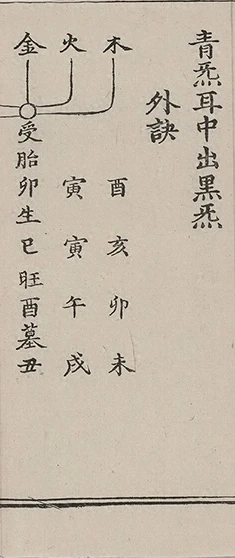 青炁耳中出黑炁
外訣
木 酉亥卯未
火 寅寅午戌
金 受胎卯生巳旺酉墓丑